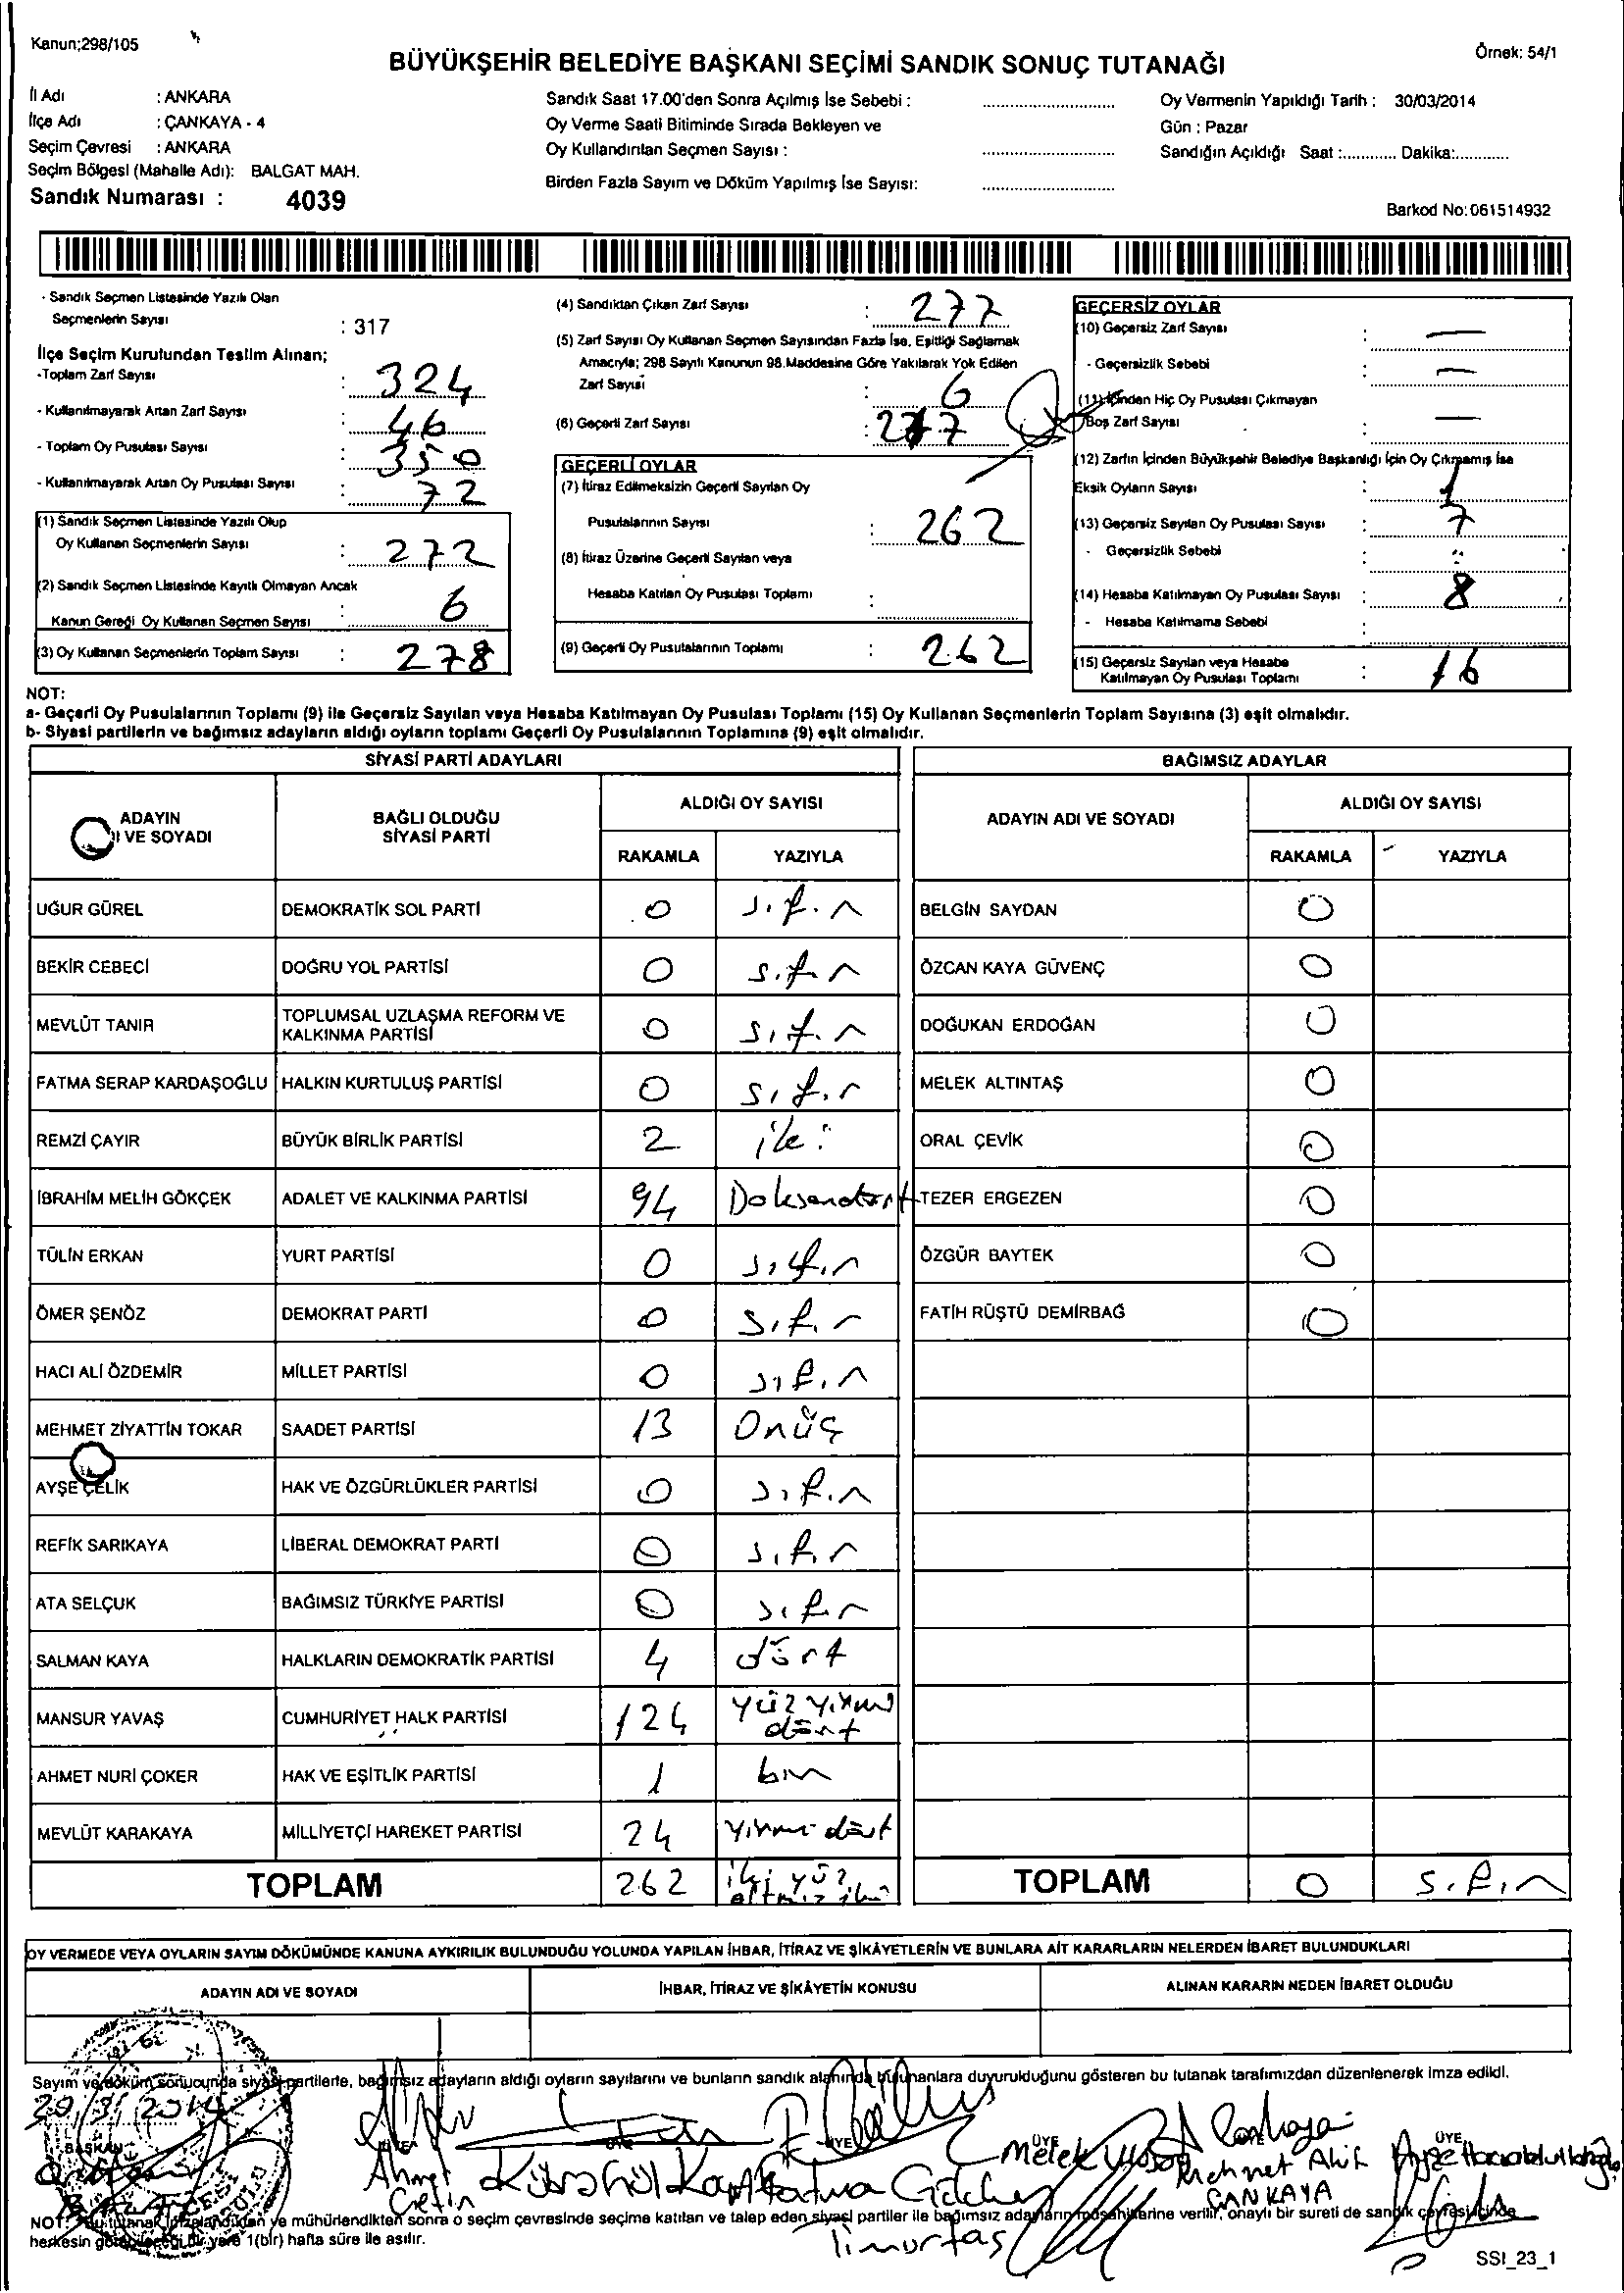 Kanun;298/105
Örnek: 54/1
BÜYÜKŞEHİR BELEDİYE BAŞKANI SEÇİMİ SANDIK SONUÇ TUTANAĞI
İl Adı : ANKARA
İlçe Adı : ÇANKAYA - 4
Seçim Çevresi : ANKARA
Seçim Bölgesi (Mahalle Adı): BALGAT MAH.
Sandık Numarası : 4039
Sandık Saat 17.00'den Sonra Açılmış İse Sebebi :
Oy Verme Saati Bitiminde Sırada Bekleyen ve
Oy Kullandırılan Seçmen Sayısı :
Birden Fazla Sayım ve Döküm Yapılmış İse Sayısı:
Oy Vermenin Yapıldığı Tarih : 30/03/2014
Gün : Pazar
Sandığın Açıldığı Saat :............ Dakika:............
Barkod No:061514932
- Sandık Seçmen Listesinde Yazılı Olan
Seçmenlerin Sayısı : 317
İlçe Seçim Kurulundan Teslim Alınan;
-Toplam Zarf Sayısı : 324
- Kullanılmayarak Artan Zarf Sayısı : 46
- Toplam Oy Pusulası Sayısı : 350
- Kullanılmayarak Artan Oy Pusulası Sayısı : 72
(1) Sandık Seçmen Listesinde Yazılı Olup
Oy Kullanan Seçmenlerin Sayısı : 272
(2) Sandık Seçmen Listesinde Kayıtlı Olmayan Ancak
Kanun Gereği Oy Kullanan Seçmen Sayısı : 6
(3) Oy Kullanan Seçmenlerin Toplam Sayısı : 278
(4) Sandıktan Çıkan Zarf Sayısı : 277
(5) Zarf Sayısı Oy Kullanan Seçmen Sayısından Fazla İse, Eşitliği Sağlamak
Amacıyla; 298 Sayılı Kanunun 98.Maddesine Göre Yakılarak Yok Edilen
Zarf Sayısı : 6
(6) Geçerli Zarf Sayısı : 277
GEÇERLİ OYLAR
(7) İtiraz Edilmeksizin Geçerli Sayılan Oy
Pusulalarının Sayısı : 262
(8) İtiraz Üzerine Geçerli Sayılan veya
Hesaba Katılan Oy Pusulası Toplamı :
(9) Geçerli Oy Pusulalarının Toplamı : 262
GEÇERSİZ OYLAR
(10) Geçersiz Zarf Sayısı : —
- Geçersizlik Sebebi : —
(11) İçinden Hiç Oy Pusulası Çıkmayan
Boş Zarf Sayısı : —
(12) Zarfın İçinden Büyükşehir Belediye Başkanlığı İçin Oy Çıkmamış İse
Eksik Oyların Sayısı : 1
(13) Geçersiz Sayılan Oy Pusulası Sayısı : 7
- Geçersizlik Sebebi :
(14) Hesaba Katılmayan Oy Pusulası Sayısı : 8
- Hesaba Katılmama Sebebi :
(15) Geçersiz Sayılan veya Hesaba
Katılmayan Oy Pusulası Toplamı : 16
NOT:
a- Geçerli Oy Pusulalarının Toplamı (9) ile Geçersiz Sayılan veya Hesaba Katılmayan Oy Pusulası Toplamı (15) Oy Kullanan Seçmenlerin Toplam Sayısına (3) eşit olmalıdır.
b- Siyasi partilerin ve bağımsız adayların aldığı oyların toplamı Geçerli Oy Pusulalarının Toplamına (9) eşit olmalıdır.
SİYASİ PARTİ ADAYLARI
ADAYIN
I VE SOYADI
BAĞLI OLDUĞU
SİYASİ PARTİ
ALDIĞI OY SAYISI
RAKAMLA YAZIYLA
UĞUR GÜREL DEMOKRATİK SOL PARTİ 0 sıfır
BEKİR CEBECİ DOĞRU YOL PARTİSİ 0 sıfır
MEVLÜT TANIR TOPLUMSAL UZLAŞMA REFORM VE
KALKINMA PARTİSİ 0 sıfır
FATMA SERAP KARDAŞOĞLU HALKIN KURTULUŞ PARTİSİ 0 sıfır
REMZİ ÇAYIR BÜYÜK BİRLİK PARTİSİ 2 iki
İBRAHİM MELİH GÖKÇEK ADALET VE KALKINMA PARTİSİ 94 Doksandört
TÜLİN ERKAN YURT PARTİSİ 0 sıfır
ÖMER ŞENÖZ DEMOKRAT PARTİ 0 sıfır
HACI ALİ ÖZDEMİR MİLLET PARTİSİ 0 sıfır
MEHMET ZİYATTİN TOKAR SAADET PARTİSİ 13 Onüç
AYŞE ÇELİK HAK VE ÖZGÜRLÜKLER PARTİSİ 0 sıfır
REFİK SARIKAYA LİBERAL DEMOKRAT PARTİ 0 sıfır
ATA SELÇUK BAĞIMSIZ TÜRKİYE PARTİSİ 0 sıfır
SALMAN KAYA HALKLARIN DEMOKRATİK PARTİSİ 4 dört
MANSUR YAVAŞ CUMHURİYET HALK PARTİSİ 124 yüz yirmi
dört
AHMET NURİ ÇOKER HAK VE EŞİTLİK PARTİSİ 1 bir
MEVLÜT KARAKAYA MİLLİYETÇİ HAREKET PARTİSİ 24 yirmi dört
TOPLAM 262 iki yüz
altmış iki
BAĞIMSIZ ADAYLAR
ADAYIN ADI VE SOYADI
ALDIĞI OY SAYISI
RAKAMLA YAZIYLA
BELGİN SAYDAN 0
ÖZCAN KAYA GÜVENÇ 0
DOĞUKAN ERDOĞAN 0
MELEK ALTINTAŞ 0
ORAL ÇEVİK 0
TEZER ERGEZEN 0
ÖZGÜR BAYTEK 0
FATİH RÜŞTÜ DEMİRBAĞ 0
TOPLAM 0 sıfır
OY VERMEDE VEYA OYLARIN SAYIM DÖKÜMÜNDE KANUNA AYKIRILIK BULUNDUĞU YOLUNDA YAPILAN İHBAR, İTİRAZ VE ŞİKÂYETLERİN VE BUNLARA AİT KARARLARIN NELERDEN İBARET BULUNDUKLARI
ADAYIN ADI VE SOYADI
İHBAR, İTİRAZ VE ŞİKÂYETİN KONUSU
ALINAN KARARIN NEDEN İBARET OLDUĞU
Sayım ve döküm sonucunda siyasi partilerle, bağımsız adayların aldığı oyların sayılarını ve bunların sandık alanında bulunanlara duyurulduğunu gösteren bu tutanak tarafımızdan düzenlenerek imza edildi.
BAŞKAN ÜYE ÜYE ÜYE
Ahmet
Çetin
Fatma
Timurtaş
Melek
Mehmet Akif
ÇANKAYA
NOT: Bu tutanak imzalandıktan ve mühürlendikten sonra o seçim çevresinde seçime katılan ve talep eden siyasi partiler ile bağımsız adayların müşahitlerine verilir, onaylı bir sureti de sandık çevresi içinde
herkesin görebileceği bir yere 1(bir) hafta süre ile asılır.
SSI_23_1